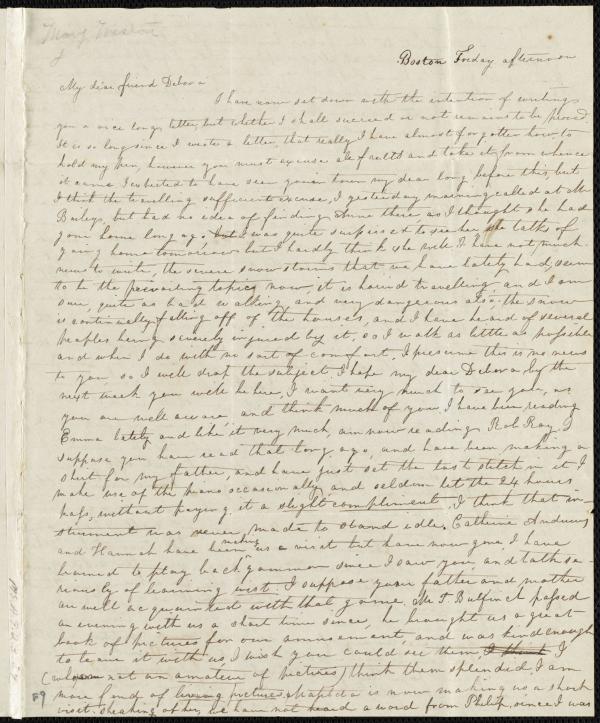 Mary Weston
Boston Friday afternoon
My dear friend Debora
I have now set down with the intention of writing
you a nice long letter, but whether I shall succeed or not remains to be proved
It is so long since I wrote a letter, that really I have almost forgotten how to
hold my pen, however you must excuse all faults and take it from whence
it came I expected to have seen you in town my dear long before this, but
I think the travelling sufficient excuse, I yesterday morning called at Mr
Baileys, but had no idea of finding Anne there as I thought she had
gone home long ago. but I was quite surprised to see her she talks of
going home tomorrow but I hardly think she will I have not much
news to write, the severe snow storms that we have lately had, seem
to be the prevailing topics now, it is horrid travelling and I am
sure, quite as bad walking and very dangerous also. the snow
is continually falling off of the houses, and I have heard of several
peoples being severely injured by it, so I walk as little as possible
and when I do with no sort of comfort, I presume this is no news
to you so I will drop the subject. I hope my dear Debora by the
next week you will be here, I want very much to see you, as
you are well aware and think much of you I have been reading
Emma lately and like it very much, am now reading Rob Roy. I
suppose you have read that long ago, and have been making a
shirt for my father, and have just set the last stitch in it I
make use of the piano occasionally and seldom let the 24 hours
pass, without paying it a slight compliment. I think that in-
strument was never made to stand idle. Catherine Andrews
and Hannah have been making us a visit but have now gone, I have
learned to play backgammon since I saw you, and talk se-
riously of learning wist. I suppose your father and mother
are well acquainted with that game. Mr T Bulfinch passed
an evening with us a short time since, he brought us a great
book of pictures for our amusement, and was kind enough
to leave it with us, I wish you could see them I think I
(who am not an amateur of pictures) think them splendid, I am
more fond of living pictures. is now making us a short
visit. speaking of her, we have not heard a word from Philip, since I was